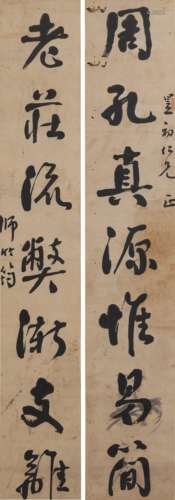 周孔真源惟易簡
老莊流弊漸支離
仁兄正